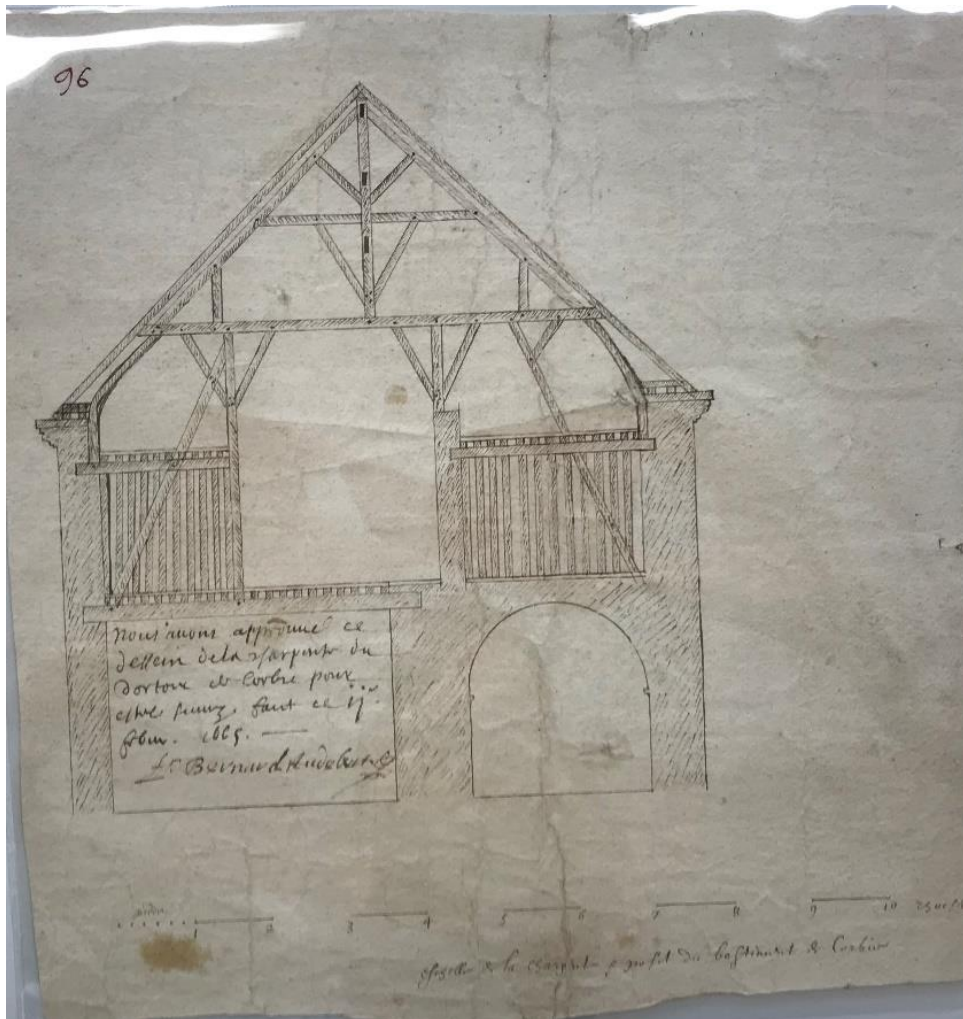 96
Nous avons approuvé ce
dessein de la charpente du
dortoir de Corbie pour
estre suivy. faict ce ij
febur. 1665.
fr Bernard Audebert
pieds
1 2 3 4 5 6 7 8 9 10
eschelle de la charpente profil du bastiment de Corbie